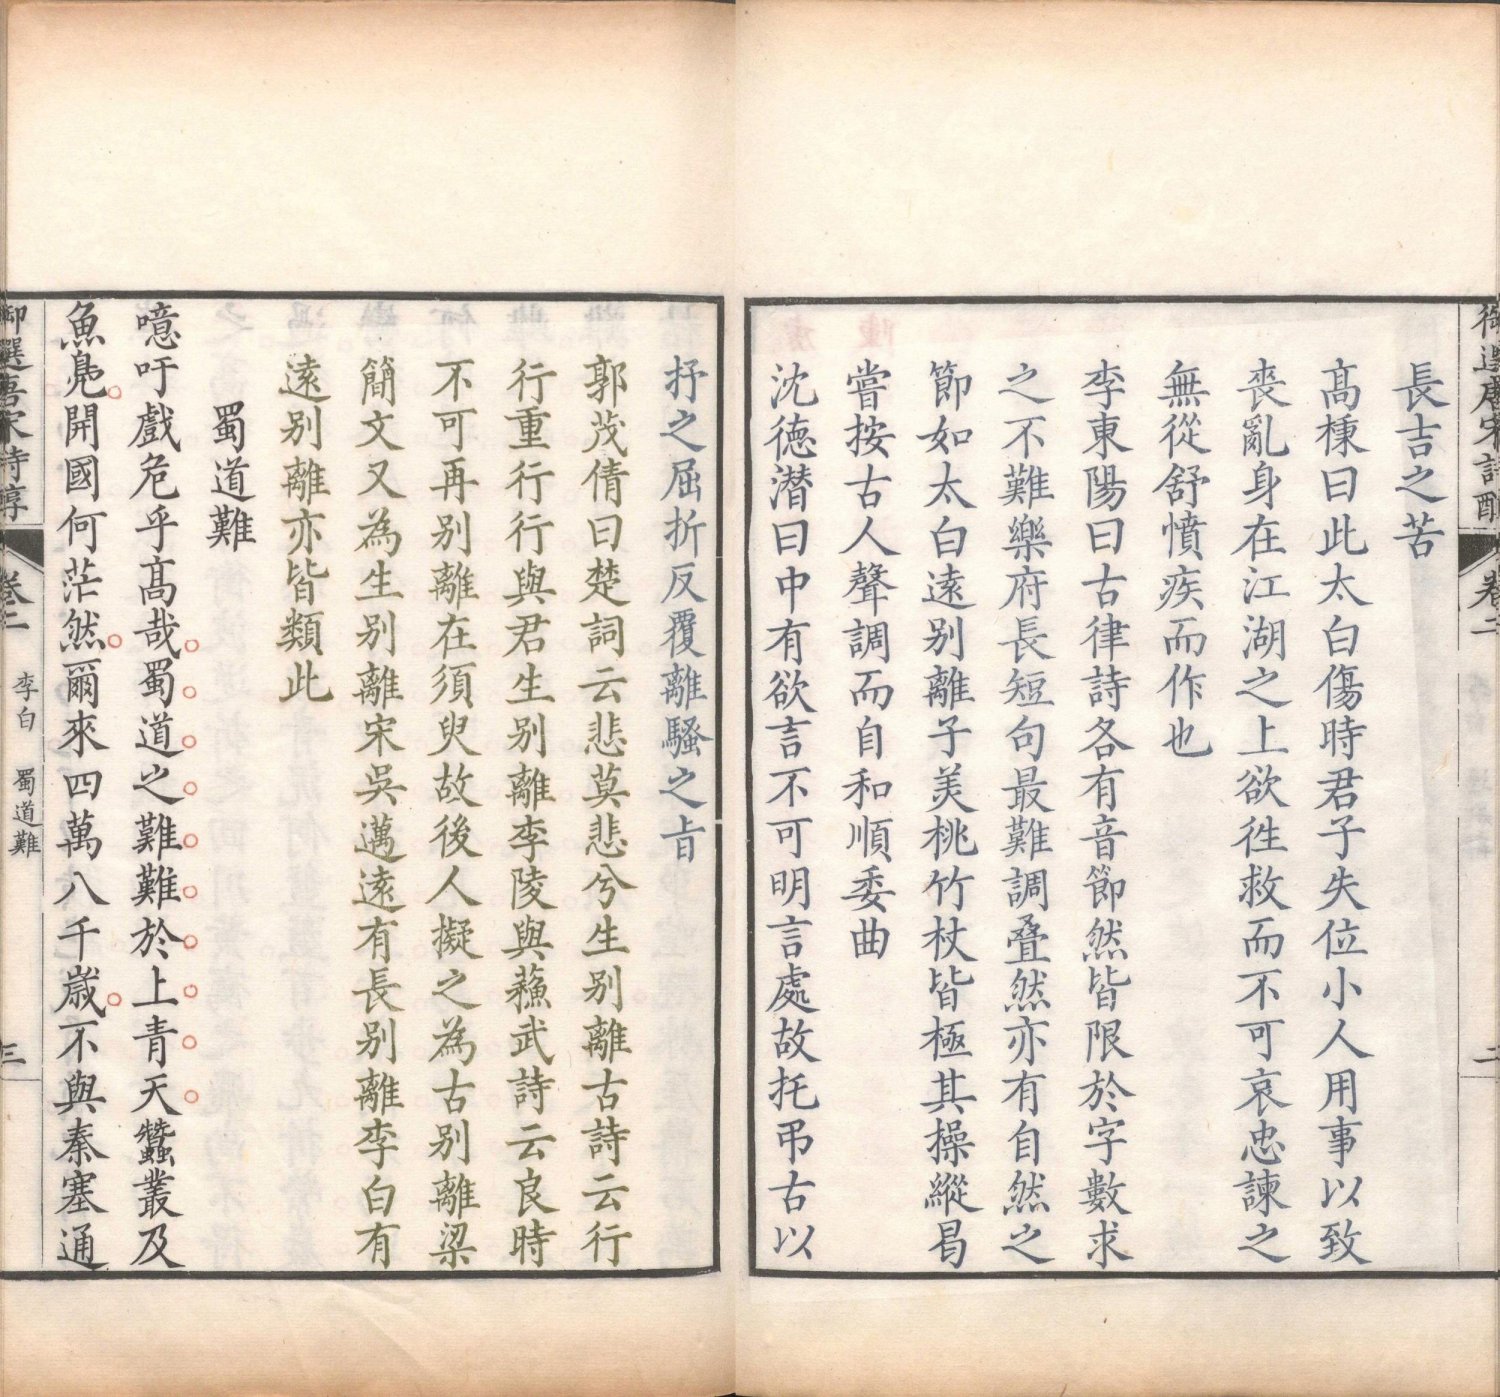 御選唐宋詩醇 卷二 二
長吉之苦
高棅曰此太白傷時君子失位小人用事以致
喪亂身在江湖之上欲徃救而不可哀忠諫之
無從舒憤疾而作也
李東陽曰古律詩各有音節然皆限於字數求
之不難樂府長短句最難調叠然亦有自然之
節如太白遠别離子羙桃竹杖皆極其操縱曷
嘗按古人聲調而自和順委曲
沈徳潜曰中有欲言不可明言處故托弔古以
抒之屈折反覆離騷之㫖
郭茂倩曰楚詞云悲莫悲兮生别離古詩云行
行重行行與君生别離李陵與蘓武詩云良時
不可再别離在須臾故後人擬之為古别離梁
簡文又為生别離宋吳邁遠有長别離李白有
遠别離亦皆類此
蜀道難
噫吁戲危乎髙哉蜀道之難難於上青天蠶叢及
魚鳧開國何茫然爾來四萬八千歲不與秦塞通
御選唐宋詩醇 卷二 李白 蜀道難 三